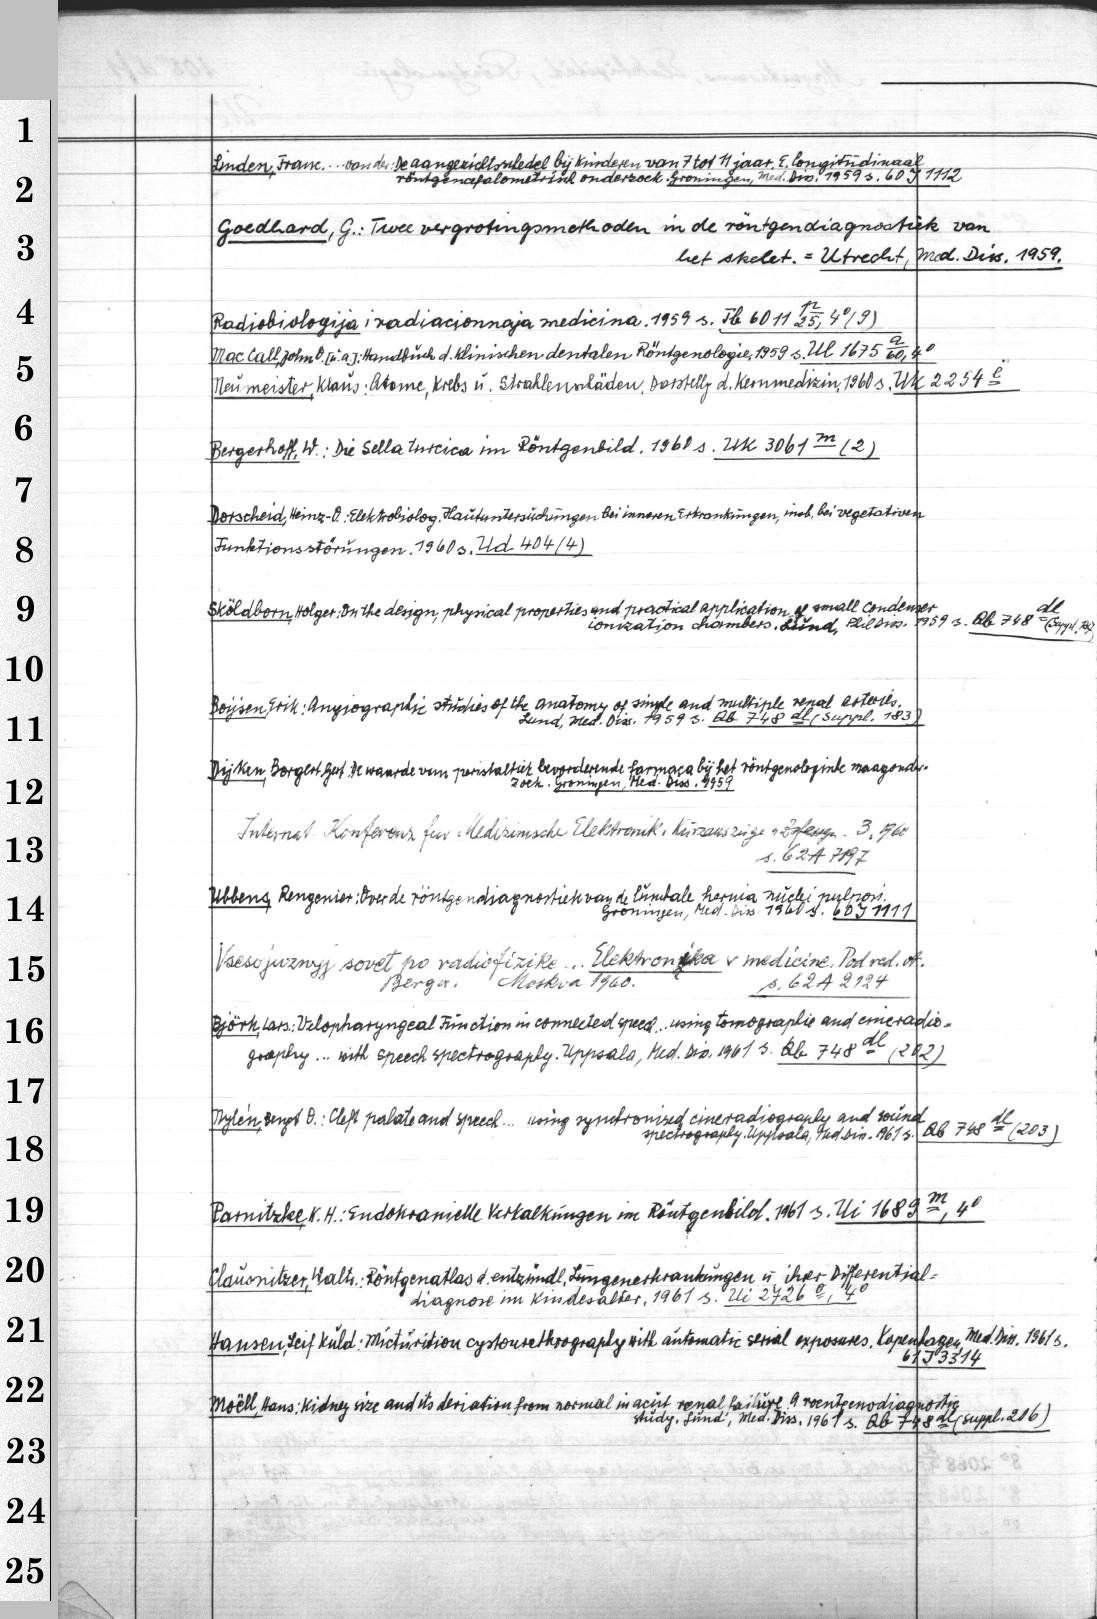 1
2
3
4
5
6
7
8
9
10
11
12
13
14
15
16
17
18
19
20
21
22
23
24
25
Linden, Franc. ... van der: De aangezichtsschedel bij kinderen van 7 tot 11 jaar. E. longitudinaal
röntgencefalometrisch onderzoek. Groningen, Med. Diss. 1959 s. 60 J 1112
Goedhard, G.: Twee vergrotingsmethoden in de röntgendiagnostiek van
het skelet. = Utrecht, Med. Diss. 1959.
Radiobiologija i radiacionnaja medicina. 1959 s. Tb 6011 n/25, 4° (9)
Mac Call, John O. [u.a.]: Handbuch d. klinischen dentalen Röntgenologie. 1959 s. Ul 1675 a/60, 4°
Neumeister, Klaus: Atome, Krebs u. Strahlenschäden. Darstellg d. Kernmedizin. 1960 s. Uk 2254 e
Bergerhoff, W.: Die Sella turcica im Röntgenbild. 1960 s. Uk 3061 m (2)
Dorscheid, Heinz-O.: Elektrobiolog. Hautuntersuchungen bei inneren Erkrankungen, insb. bei vegetativen
Funktionsstörungen. 1960 s. Ud 404 (4)
Sköldborn, Holger: On the design, physical properties and practical application of small condenser
ionization chambers. Lund, Phil Diss. 1959 s. Qb 748 dl (Suppl.
Boijsen, Erik: Angiographic studies of the anatomy of single and multiple renal arteries.
Lund, Med. Diss. 1959 s. Qb 748 dl (Suppl. 183)
Dijken, Borgert Gert: De waarde van peristaltiek bevorderende farmaca bij het röntgenologische maagonder-
zoek. Groningen, Med. Diss. 1959
Internat. Konferenz fur Medizinische Elektronik. Kurzauszüge 3. 1960
s. 62 A 7197
Ubbens, Rengenier: Over de röntgendiagnostiek van de lumbale hernia nuclei pulposi.
Groningen, Med. Diss. 1960 s. 60 J 1111
Vsesojuznyj sovet po radiofizike ... Elektronika v medicine. Pod red. A.
Berga. Moskva 1960. s. 62 A 2124
Björk, Lars: Velopharyngeal Function in connected speed... using tomographie and cineradio=
graphy ... with speech spectrography. Uppsala, Med. Diss. 1961 s. Qb 748 dl (202)
Nylén, Bengt O.: Cleft palate and speech ... using synchronized cineradiography and sound
spectrography. Uppsala, Med Diss. 1961 s. Qb 748 dl (203)
Parnitzke, K. H.: Endokranielle Verkalkungen im Röntgenbild. 1961 s. Ui 1689 m, 4°
Clausnitzer, Walt.: Röntgenatlas d. entzündl. Lungenerkrankungen u. ihrer Differential=
diagnose im Kindesalter. 1961 s. Ui 2726 o, 4°
Hansen, Leif Kuld: Micturition cystourethrography with automatic serial exposures. Kopenhagen, Med. Diss. 1961 s.
61 J 3314
Moëll, Hans: Kidney size and its deviation from normal in acut renal failure. A roentgenodiagnostic
study. Lund, Med. Diss. 1961 s. Qb 748 dl (Suppl. 206)